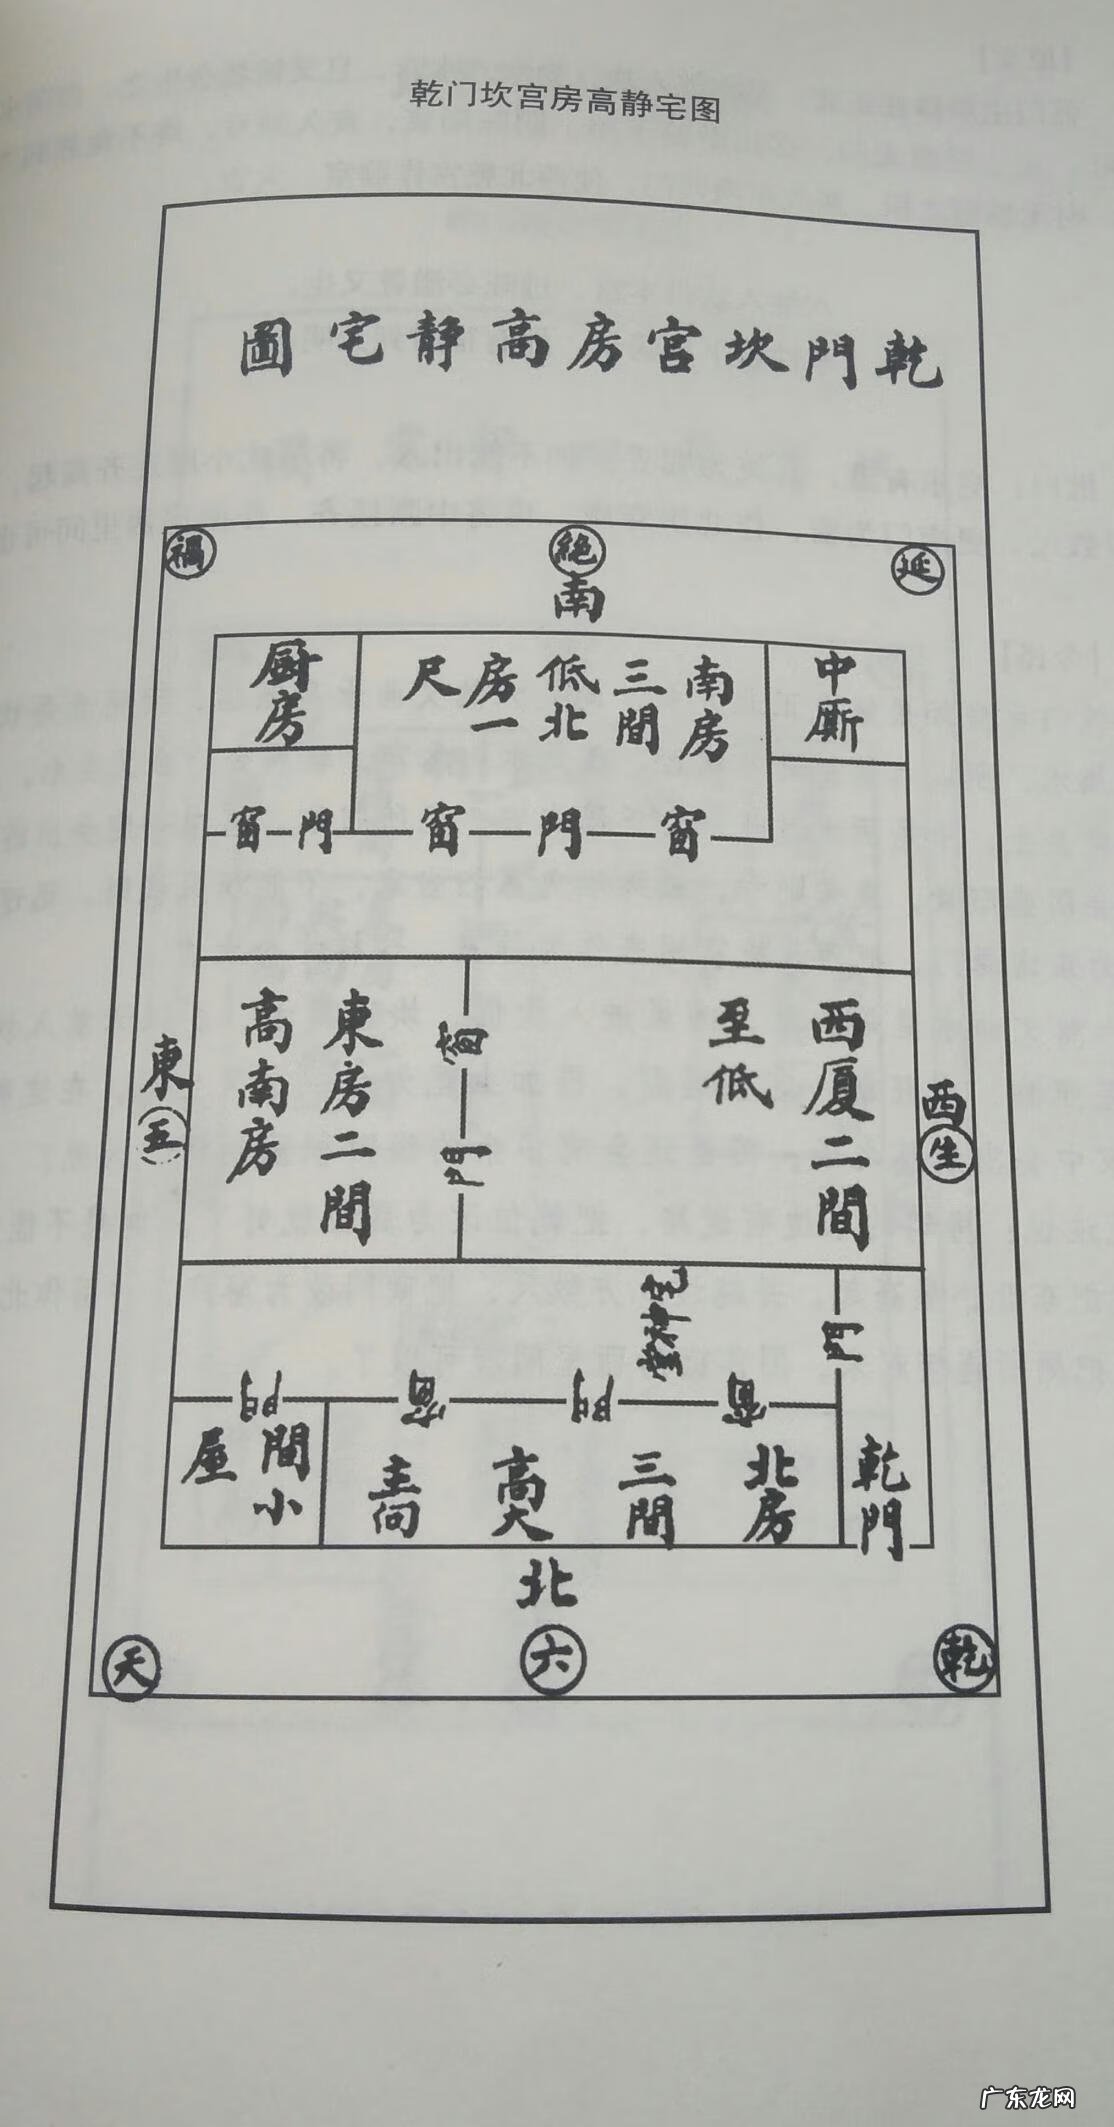 乾门坎宫房高静宅图
乾門坎宮房高静宅圖
禍
絶
延
南
厨房
南房三間低北房一尺
中厠
窗
門
窗
門
窗
東房二間高南房
西厦二間至低
東
五
西
生
窗
門
門
門
窗
門
窗
間小屋
北房三間高大
乾門
北
天
六
乾
广东龙网